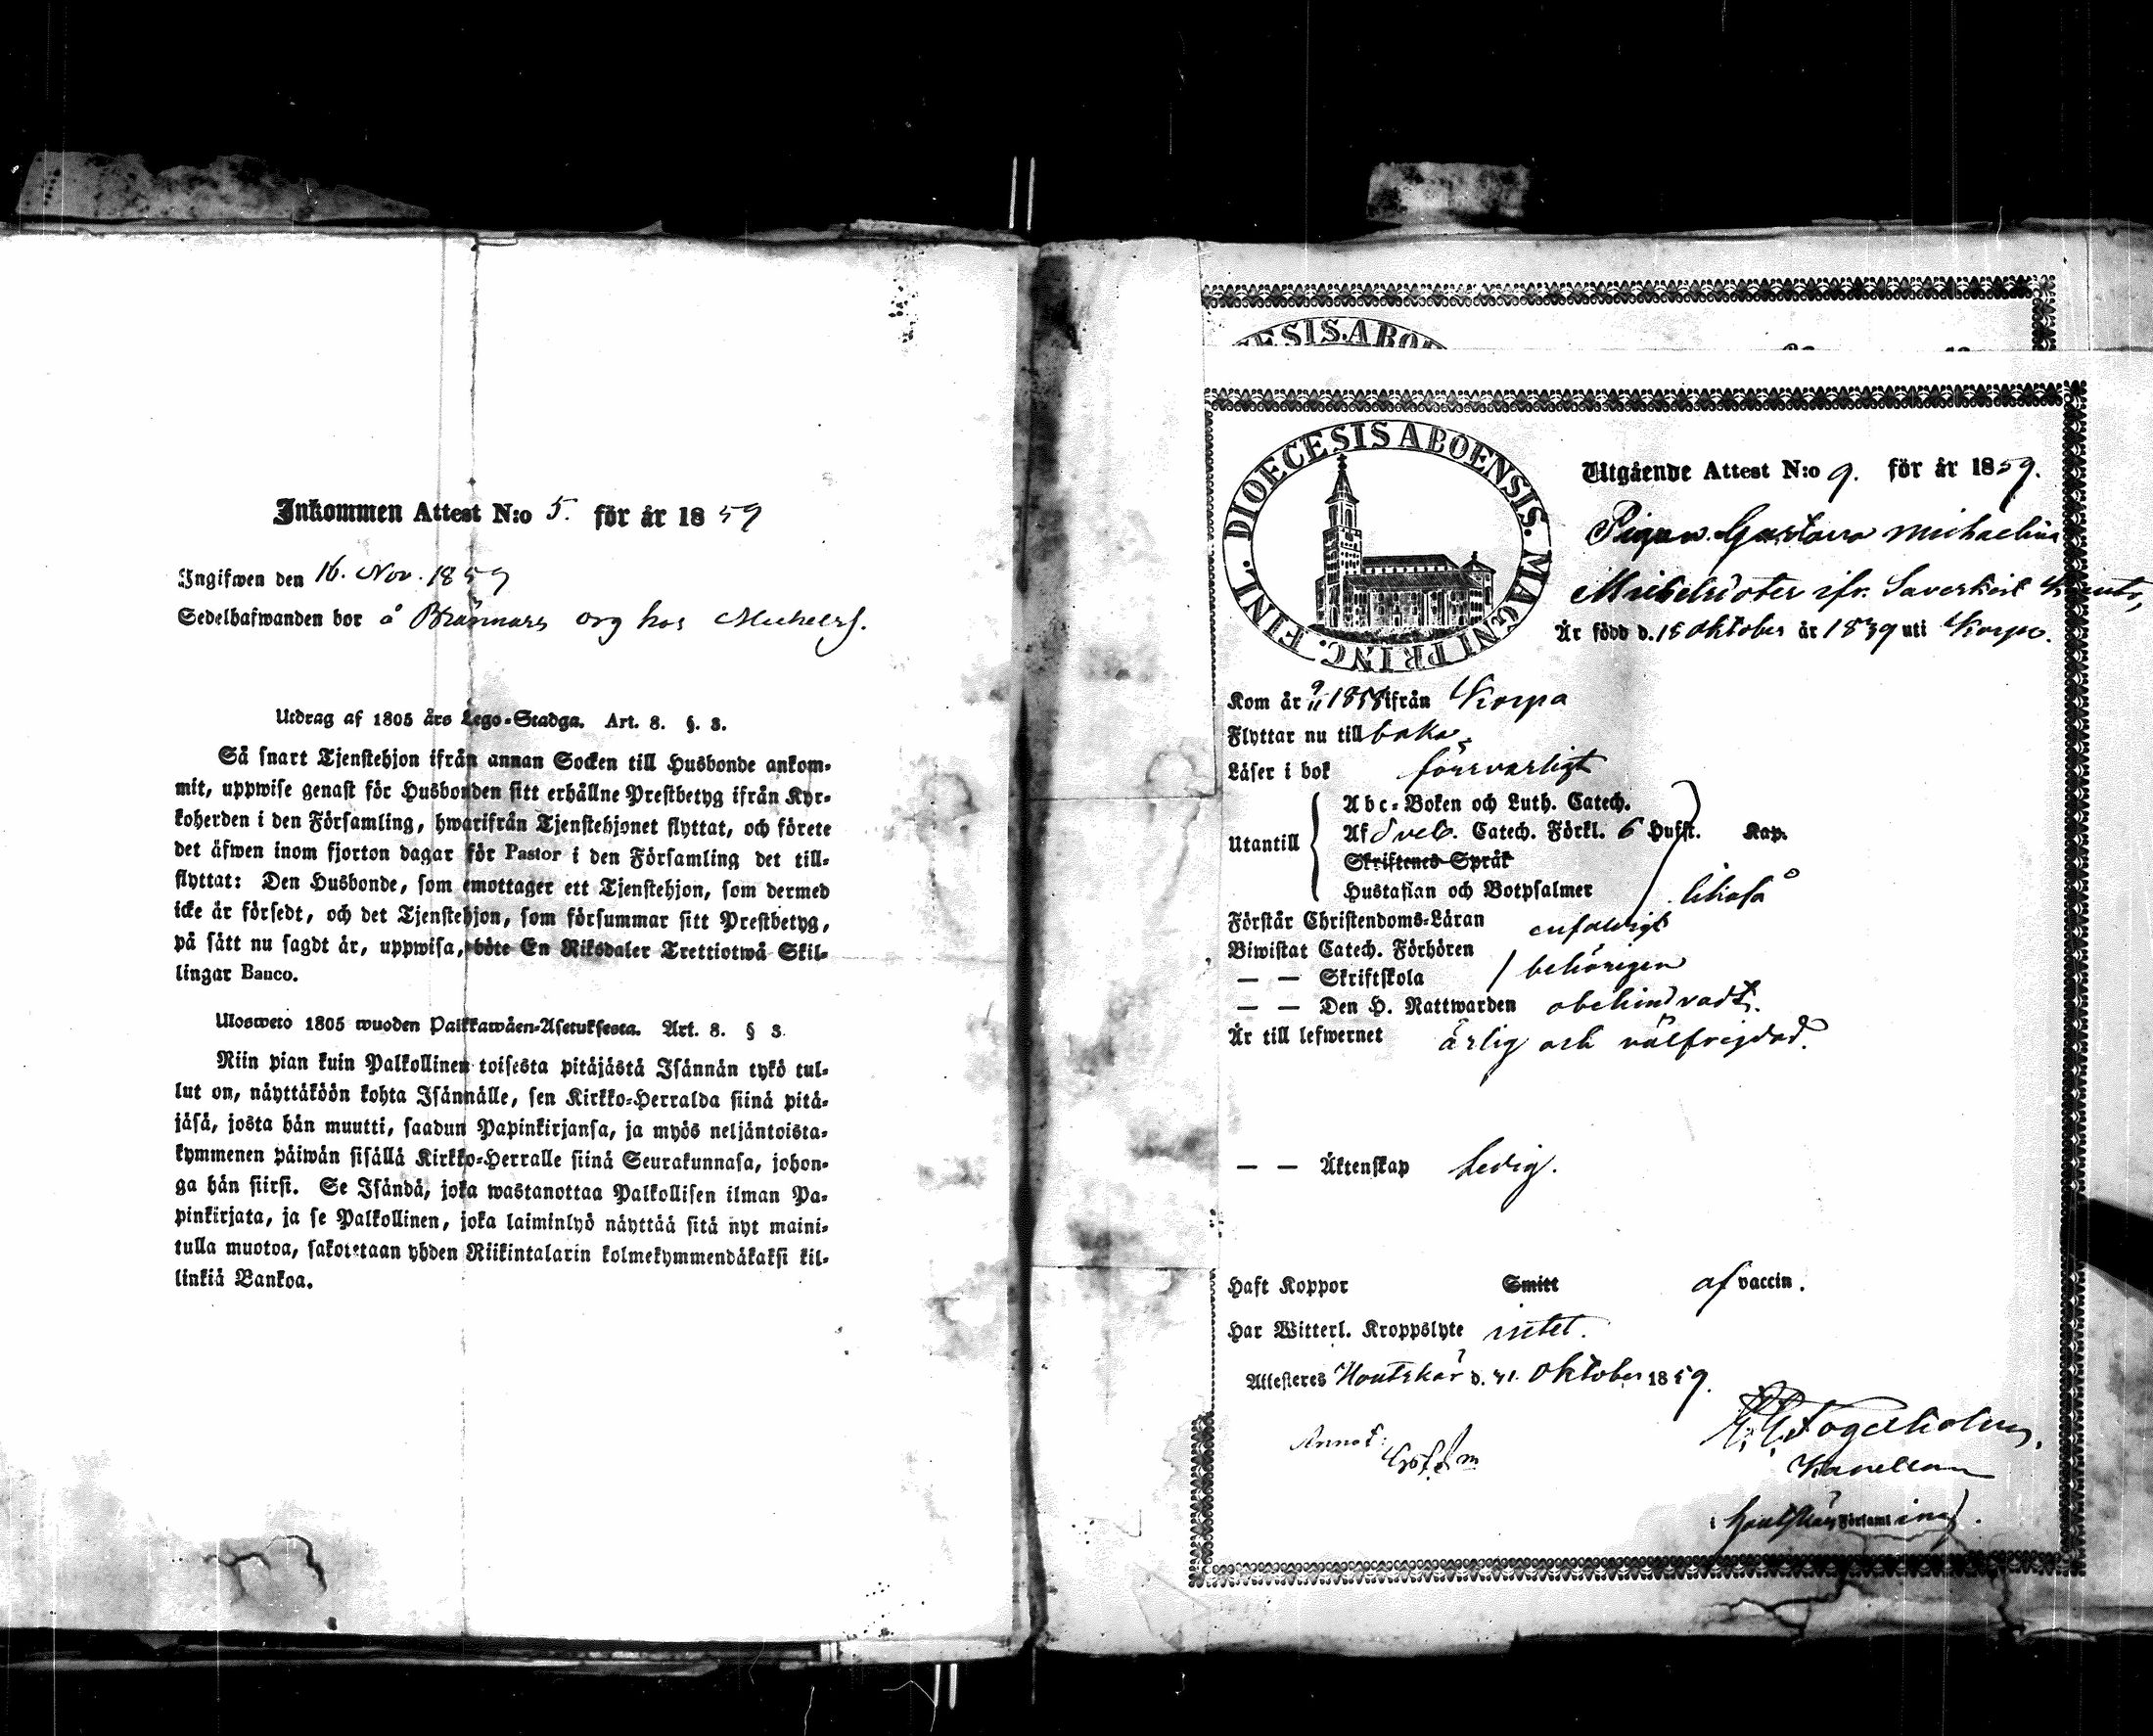 Inkommen Attest N:o 5. för år 1859
Ingifwen den 16. Nov. 1859
Sedelhafwanden bor å Brännars org hos
Utdrag af 1805 års Lego-Stadga. Art. 8. §. 3.
Så snart Tjenstehjon ifrån annan Socken till Husbonde ankom-
mit, uppwise genast för Husbonden sitt erhållne Prestbetyg ifrån Kyr-
koherden i den Församling, hwarifrån Tjenstehjonet flyttat, och förete
det äfwen inom fjorton dagar för Pastor i den Församling det till-
flyttat: Den Husbonde, som emottager ett Tjenstehjon, som dermed
icke är försedt, och det Tjenstehjon, som försummar sitt Prestbetyg,
på sätt nu sagdt är, uppwisa, böte En Riksdaler Trettiotwå Skil-
lingar Banco.
Ulosweto 1805 wuoden Palkkawäen-Asetuksesta. Art. 8. § 3.
Niin pian kuin Palkollinen toisesta pitäjästä Isännän tykö tul-
lut on, näyttäköön kohta Isännälle, sen Kirkko-Herralda siinä pitä-
jäsä, josta hän muutti, saadun Papinkirjansa, ja myös neljäntoista-
kymmenen päiwän sisällä Kirkko-Herralle siinä Seurakunnasa, johon-
ga hän siirsi. Se Isändä, joka wastanottaa Palkollisen ilman Pa-
pinkirjata, ja se Palkollinen, joka laiminlyö näyttää sitä nyt maini-
tulla muotoa, sakotetaan yhden Riikintalarin kolmekymmendäkaksi kil-
linkiä Bankoa.
ESIS.ABO
FINL. DIOECESIS ABOENSIS. MAGNI PRINC.
Utgående Attest N:o 9. för år 1859.
Pigan Gustava Michaelina
Michelsdotter ifr. Saverkeit
Är född d. 18 Oktober år 1839 uti Korpo.
Kom år 9/11 1858 ifrån Korpo
Flyttar nu till baka.
Läser i bok försvarligt
Utantill
Abc-Boken och Luth. Catech.
Af Sveb. Catech. Förkl. 6 Hufst. Kap.
Skriftenes Språk
Hustaflan och Botpsalmer likaså
Förstår Christendoms-Läran enfaldigt
Biwistat Catech. Förhören
— — Skriftskola behörigen
— — Den H. Nattwarden obehindradt.
Är till lefwernet ärlig och välfrejdad.
— — Äktenskap Ledig.
Haft Koppor Smitt af vaccin.
Har Witterl. Kroppslyte intet.
Attesteres Houtskär d. 31. Oktober 1859.
Fogelholm,
Annot:
Kapellan
i Houtskärs Församling.